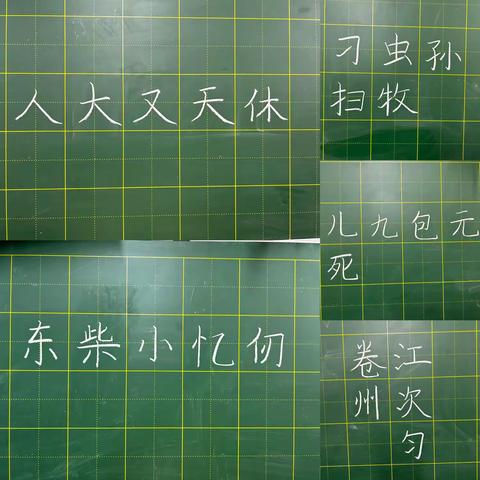 人大又天休
刁虫孙
扫牧
儿九包元
死
东柴小忆仞
卷江
州次
匀